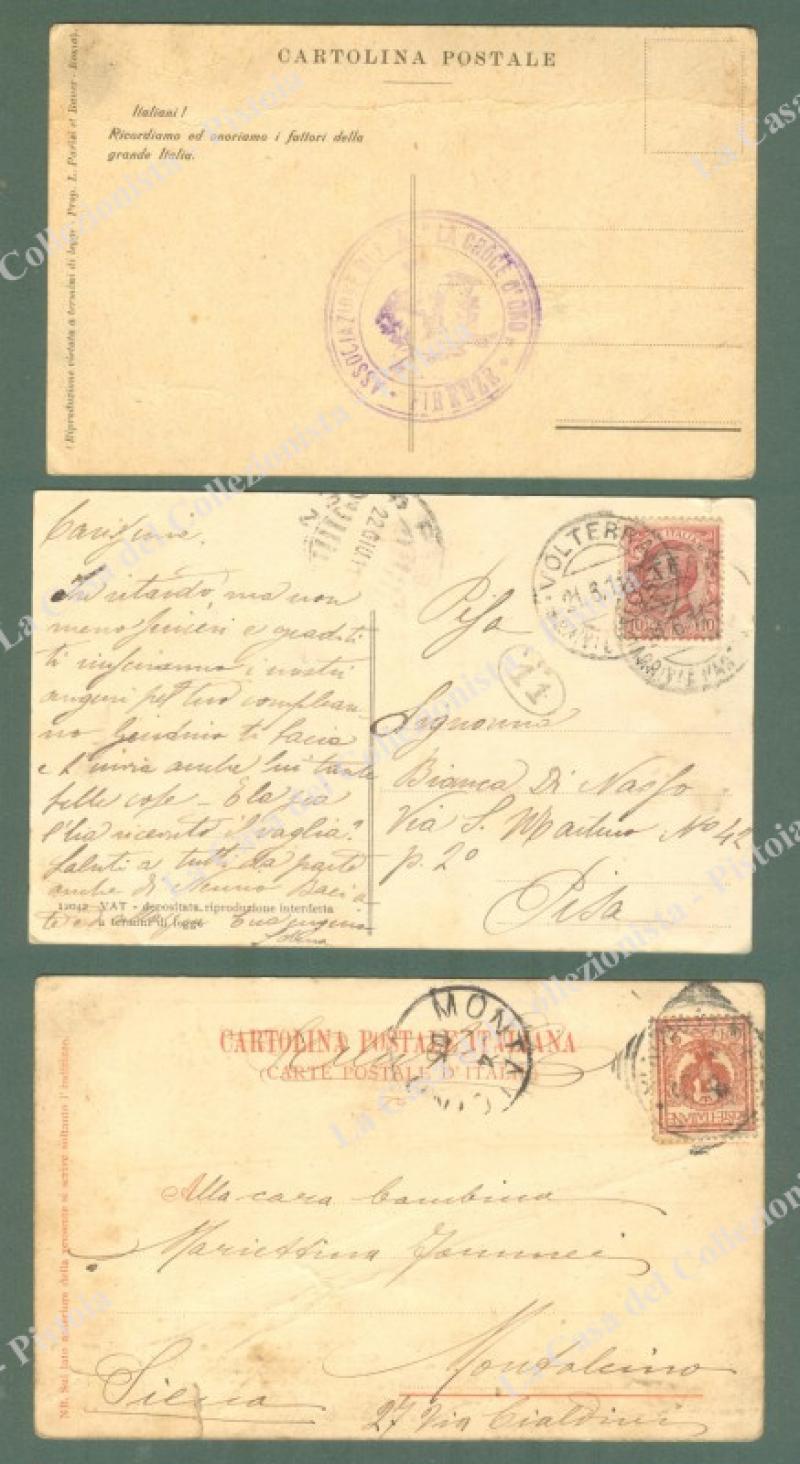 CARTOLINA POSTALE
Italiani!
Ricordiamo ed onoriamo i fattori della
grande Italia.
(Riproduzione vietata a termini di legge - Prop. L. Parisi et Bauer - Roma).
ASSOCIAZIONE LA CROCE D'ORO
FIRENZE
Carissima,
In ritardo, ma non
meno sinceri e graditi
ti riusciranno i nostri
auguri pel tuo complean-
no. ti bacia
e t'invia anche lui tante
belle cose - E la zia
l'ha ricevuto il vaglia?
Saluti a tutti da parte
anche di Nenno Bacia-
te
12042 VAT - depositata, riproduzione interdetta
a termini di legge
22 GIU
VOLTERRA
ARRIVI E PAR
11
10 10
Pisa
Signorina
Bianca Di Nasso
Via S. Martino No 42
p. 2o
Pisa
CARTOLINA POSTALE ITALIANA
(CARTE POSTALE D'ITALIE)
MONTALCINO
Alla cara bambina
Mariettina
Montalcino
Siena
27 Via Cialdini
NB. Sul lato anteriore della presente si scrive soltanto l'indirizzo.
La Casa del Collezionista - Pistoia